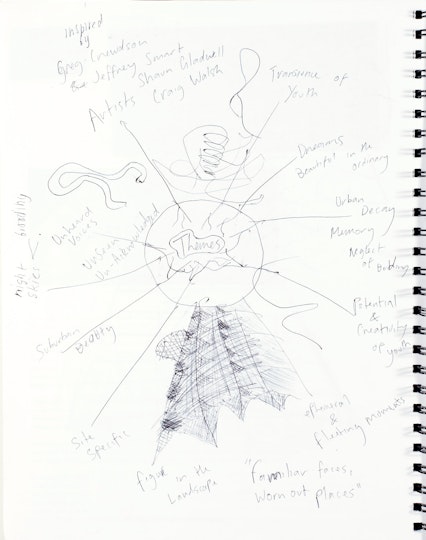 inspired
by
Greg Crewdson
Jeffrey Smart
Shaun Gladwell
Craig Walsh
Artists
Transience of
Youth
Dreams
Beautiful in the
ordinary
Urban
Decay
Memory
Neglect
of
Potential
&
Creativity
of youth
ephemeral
&
fleeting moments
"Familiar faces,
worn out places"
Figure in the
Landscape
Site
Specific
Suburban
night
skies
brooding
Unheard
Voices
UnSeen
UnAcknowledged
Themes